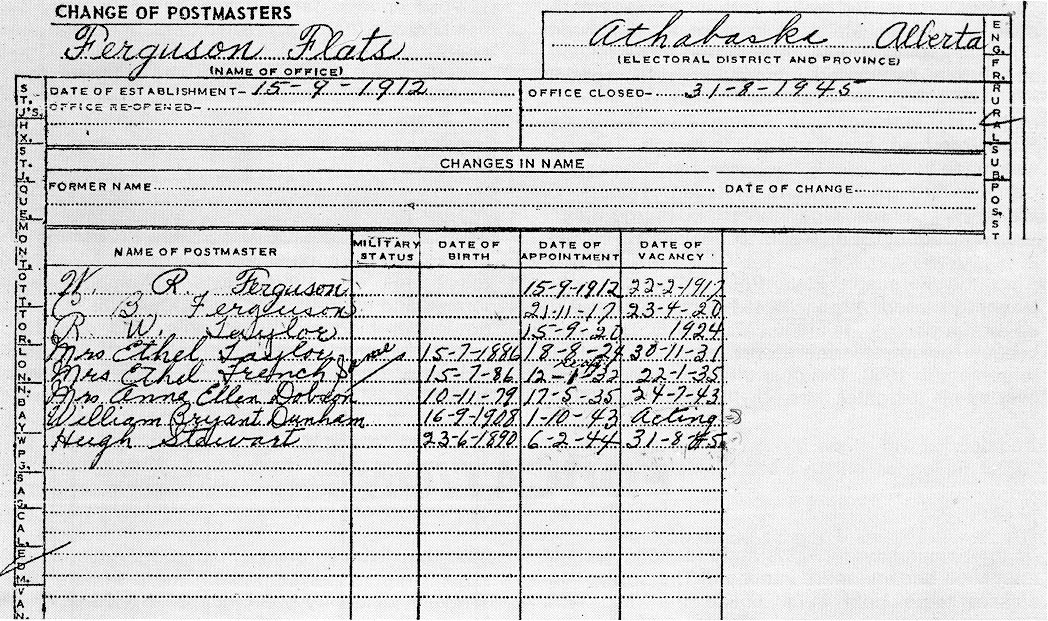 CHANGE OF POSTMASTERS
Ferguson Flats
(NAME OF OFFICE)
Athabaska Alberta
(ELECTORAL DISTRICT AND PROVINCE)
DATE OF ESTABLISHMENT- 15-9-1912
OFFICE RE-OPENED-
OFFICE CLOSED- 31-8-1945
CHANGES IN NAME
FORMER NAME DATE OF CHANGE
NAME OF POSTMASTER MILITARY STATUS DATE OF BIRTH DATE OF APPOINTMENT DATE OF VACANCY
W. R. Ferguson 15-9-1912 22-2-1917
B. Ferguson 21-11-17 23-4-20
R. W. Taylor 15-9-20 1924
Mrs Ethel Taylor 15-7-1886 18-8-24 30-11-31
Mrs Ethel French 15-7-86 22-1-35
Mrs. Anna Ellen Dobson 10-11-79 17-5-35 24-7-43
William Bryant Dunham 16-9-1908 1-10-43 Acting
Hugh Stewart 23-6-1890 6-2-44 31-8-45
ENG. FR. RURAL SUB. POSST
ST. J'S. HX. ST. J. QUE MONT OTT TOR LON N.BAY WPG. SAS. CAL. EDM. VAN.